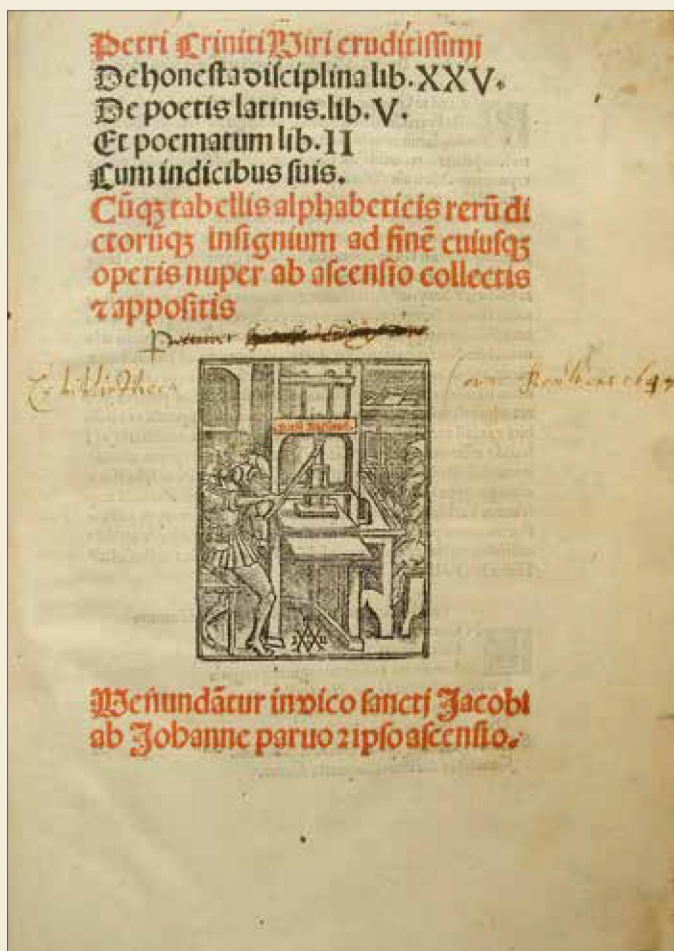 Petri Criniti Viri eruditissimi
De honesta disciplina lib. XXV.
De poetis latinis. lib. V.
Et poematum lib. II
Cum indicibus suis.
Cũqꝫ tabellis alphabeticis rerũ di
ctorũqꝫ insignium ad finẽ cuiusqꝫ
operis nuper ab ascensio collectis
⁊ appositis
Ex bibliotheca
Venundãtur in vico sancti Jacobi
ab Johanne paruo ⁊ ipso ascensio.